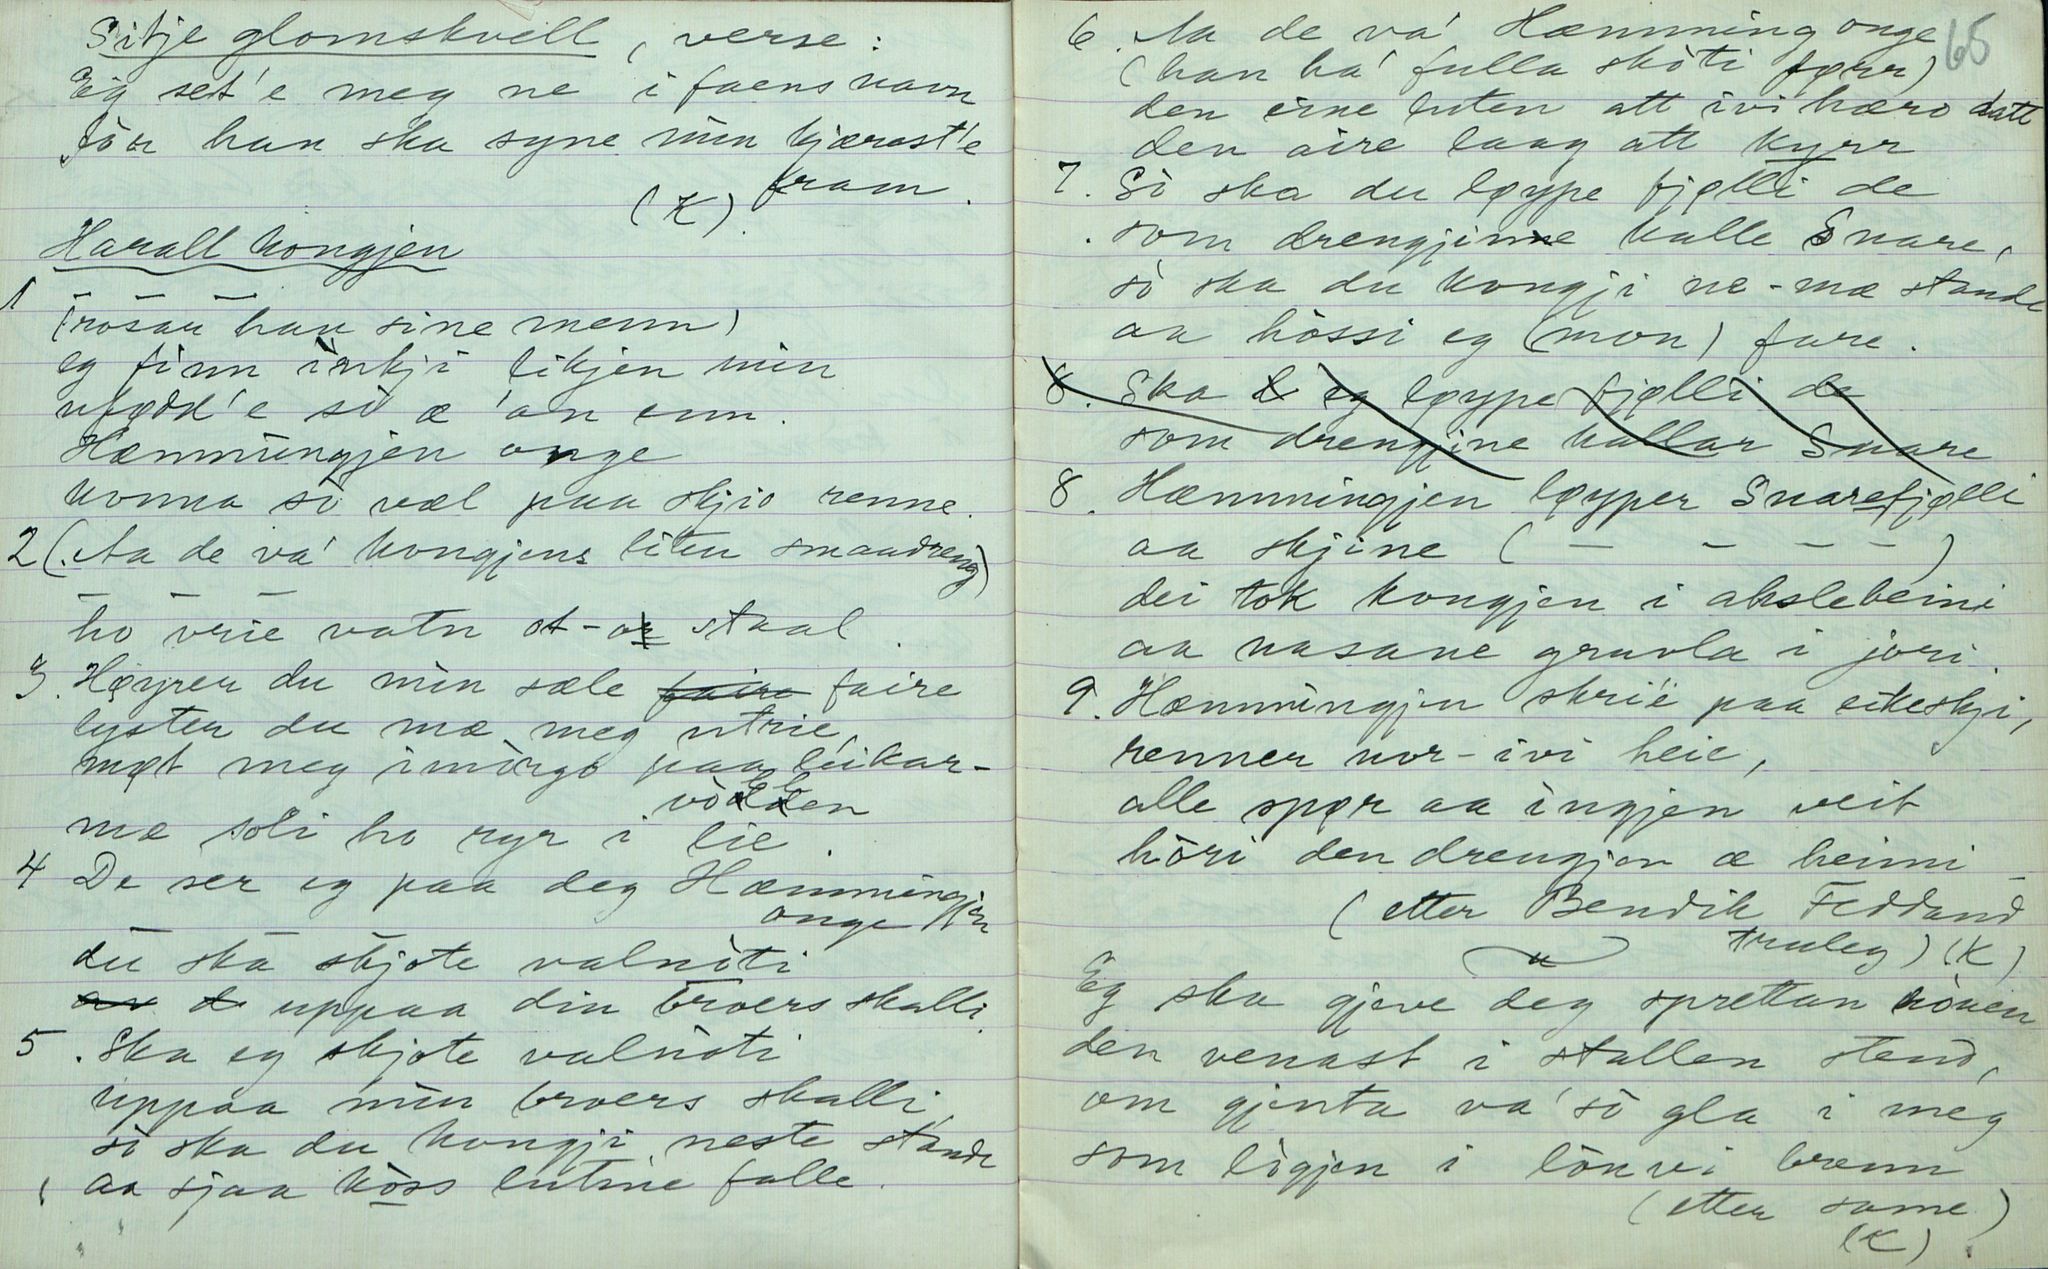 Sitje glomskvell, verse:
Eig set'e meg ne i faens navn
før han ska syne min kjærest'e
fram.
(K)
Harall kongjen
1 — — —
(rosar han sine menn)
eg finn inkji likjen min
ufødd'e so æ 'an enn.
Hæmmingjen onge
konna so væl paa skjio renne.
2 (Aa de va' kongjens liten smaadreng)
— — —
ho vrie vatn ot-or staal.
3. Høyrer du min sæle faire
lyster du mæ meg utrie,
møt meg imorgo paa leikar-
vøllen
mæ soli ho ryr i lie.
4 De ser eg paa deg Hæmmingjen
onge
du ska skjote valnoti
uppaa din broers skalli.
5. Ska eg skjote valnoti
uppaa min broers skalli,
so ska du kongji neste stande
aa sjaa hoss lutine falle.
65
6. Aa de va' Hæmming onge
(han ha' fulla skoti førr)
den eine luten att ivi hæro datt
den aire laag att kyrr
7. So ska du løype fjølli de
som drengjine kalle Snare,
so ska du kongji ne-mæ stande
aa hossi eg (mon) fare.
8. Ska eg løype fjølli de
som drengjine kallar Snare
8. Hæmmingjen løyper Snarefjølli
aa skjine ( — — — — )
dei tok kongjen i akslebeini
aa nasane gruvla i jori.
9. Hæmmingjen skrie paa eikeskji,
renner nor-ivi heie,
alle spør aa ingjen veit
hori den drengjen æ heimi
(etter Bendik Feddand
truleg) (K)
Eg ska gjeve deg sprettan
den venast i stallen stend,
om gjenta va' so gla i meg
som logjen i lonvi brenn
(etter same)
(K).